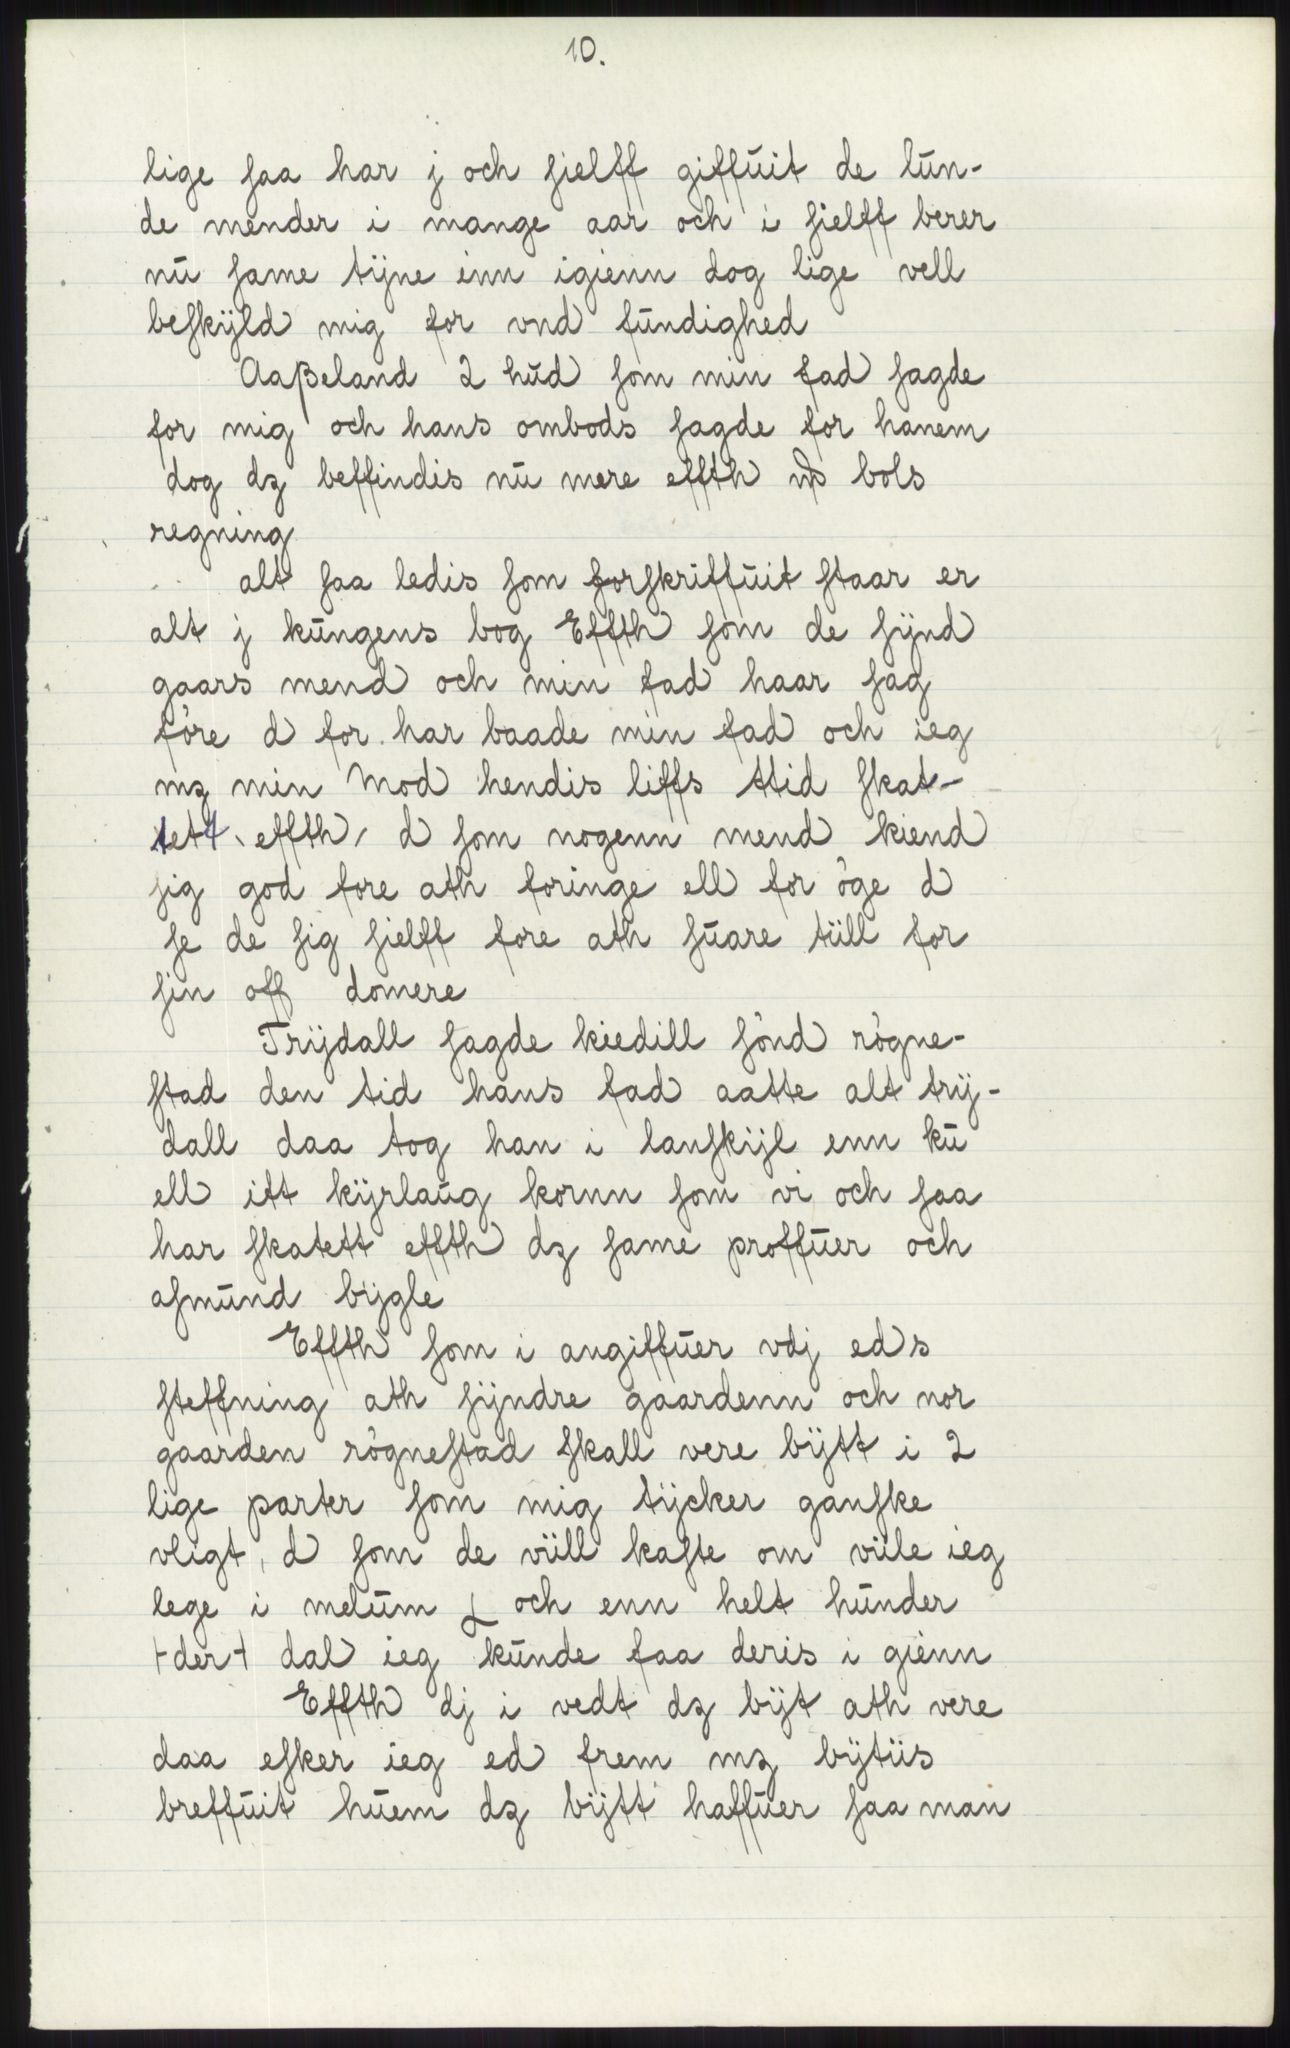 10.
lige saa har j och sielff giffuit de lun-
de mender i mange aar och i sielff berer
nu same tijne inn igienn dog lige vell
beskijld mig for vnd fundighed
Aaßeland 2 hud som min fad sagde
for mig och hans ombods sagde for hanem
dog dz beffindis nu mere effth bols
regning
alt saa ledis som forskriffuit staar er
alt j kungens bog Effth som de sijnd
gaars mend och min fad haar sag
före d for har baade min fad och ieg
mz min Mod hendis liffs ttid skat-
tett effth d som nogenn mend kiend
sig god fore ath foringe ell for öge d
se de sig sielff fore ath suare tüll for
sin off domere
Trijdall sagde kiedill sönd rögne-
stad den tid hans fad aatte alt trij-
dall daa tog han i lanskijl enn ku
ell itt kijrlaug kornn som vi och saa
har skatett effth dz same proffuer och
asmund bijgle
Effth som i angiffuer vdj eds
steffning ath sijndre gaardenn och nor
gaarden rögnestad skall vere bijtt i 2
lige parter som mig tijcker ganske
vligt, d som de vüll kaste om vüle ieg
lege i melum och enn helt hunder
+der+ dal ieg kunde faa deris i gienn
Effth dj i vedt dz bijt ath vere
daa esker ieg ed frem mz bijtüs
breffuit huem dz bijtt haffuer saa man